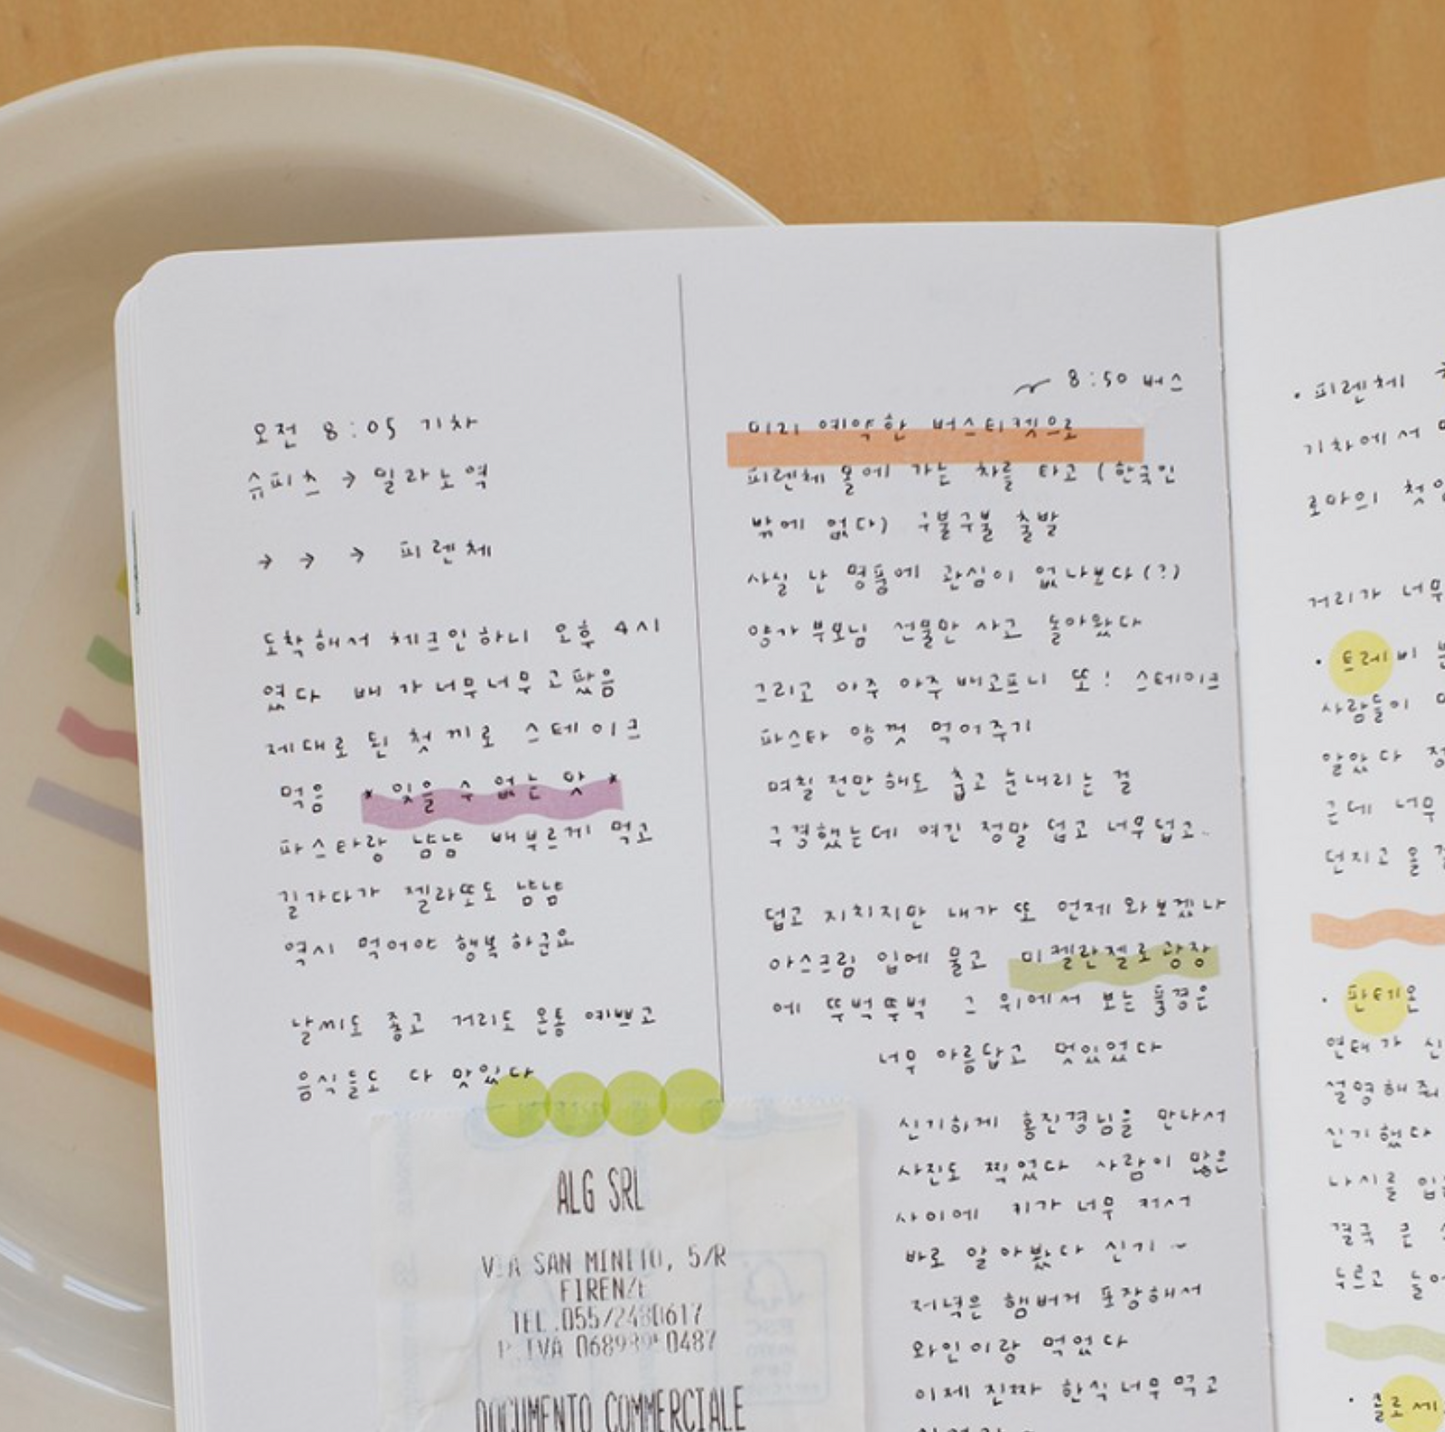 오전 8:05 기차
슈피츠 → 밀라노역
→ → → 피렌체
도착해서 체크인하니 오후 4시
였다 배가 너무너무 고팠음
제대로 된 첫끼로 스테이크
먹음 * 잊을 수 없는 맛 *
파스타랑 냠냠 배부르게 먹고
길가다가 젤라또도 냠냠
역시 먹어야 행복하군요
날씨도 좋고 거리도 온통 예쁘고
음식들도 다 맛있다
ALG SRL
VIA SAN MINIATO, 5/R
FIRENZE
TEL.055/2480617
P.IVA
DOCUMENTO COMMERCIALE
8:50 버스
미리 예약한 버스티켓으로
피렌체 몰에 가는 차를 타고 (한국인
밖에 없다) 구불구불 출발
사실 난 명품에 관심이 없나보다(?)
양가 부모님 선물만 사고 돌아왔다
그리고 아주 아주 배고프니 또! 스테이크
파스타 양껏 먹어주기
며칠 전만 해도 춥고 눈내리는 걸
구경했는데 여긴 정말 덥고 너무덥고..
덥고 지치지만 내가 또 언제 와보겠나
아스크림 입에 물고 미켈란젤로광장
에 뚜벅뚜벅 그 위에서 보는 풍경은
너무 아름답고 멋있었다
신기하게 홍진경님을 만나서
사진도 찍었다 사람이 많은
사이에 키가 너무 커서
바로 알아봤다 신기~
저녁은 햄버거 포장해서
와인이랑 먹었다
이제 진짜 한식 너무 먹고
• 피렌체
기차에서
로마의
거리가 너무
• 트레비
사람들이
알았다
근데 너무
던지고 올
• 판테온
연태가
설명해줘
신기했다
나시를
결국
두르고